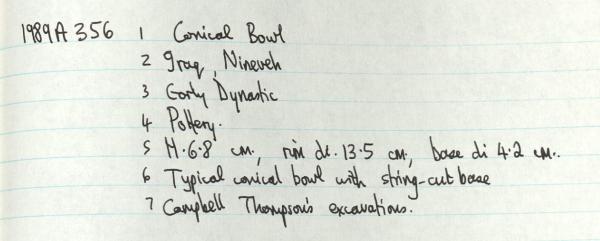 1989A 356 1 Conical Bowl
2 Iraq, Nineveh
3 Early Dynastic
4 Pottery.
5 H. 6.8 cm, rim di. 13.5 cm, base di 4.2 cm.
6 Typical conical bowl with string-cut base
7 Campbell Thompson's excavations.